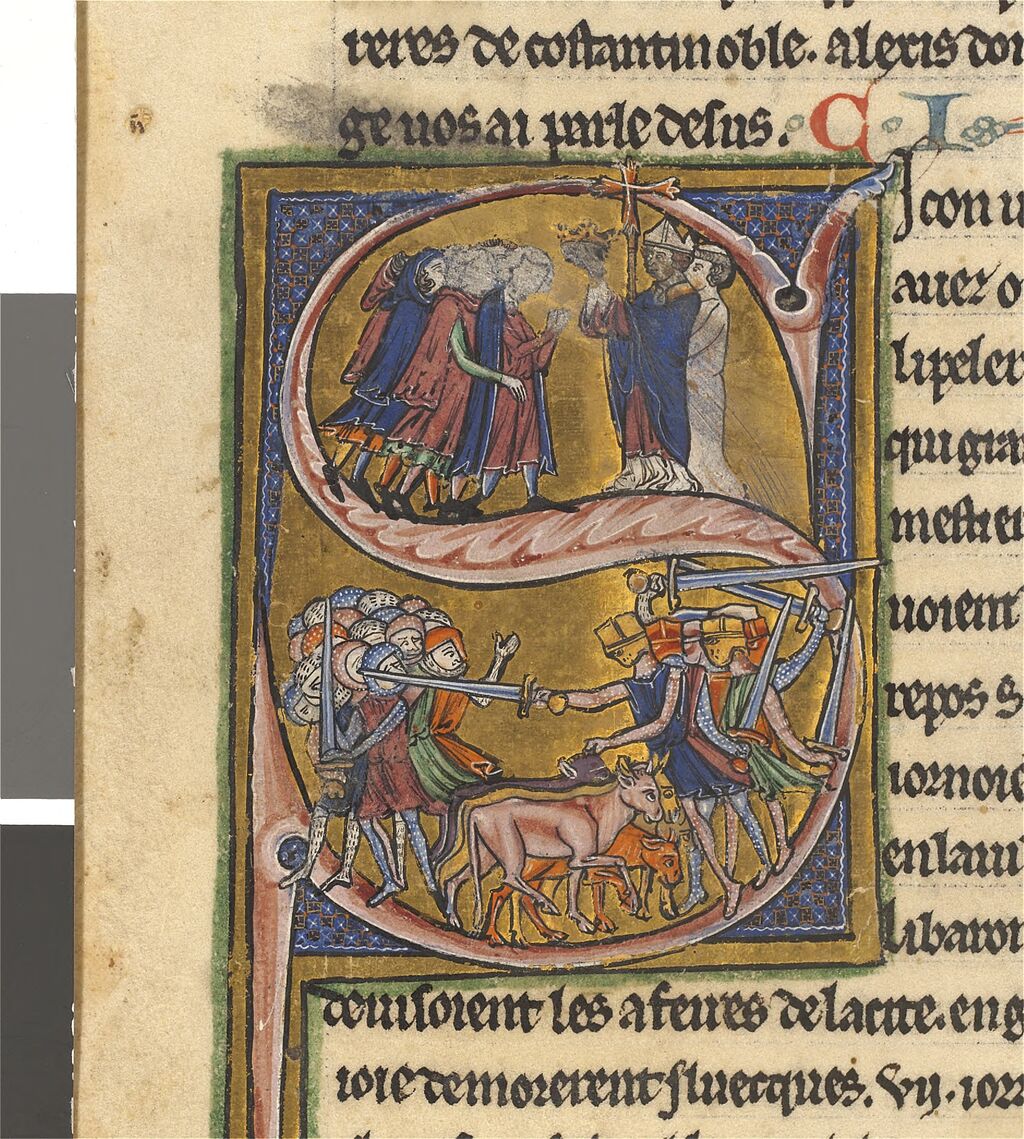 reres de costantinoble. alexis don
ge uos ai parle desus. C. I.
Icon u
auer o
li peler
qui gran
mestier
uoient
repos s
iornoie
en la uil
li baron
deuisoient les afeires de la cite. en g
ioie demorerent iluecques. vij. iorz